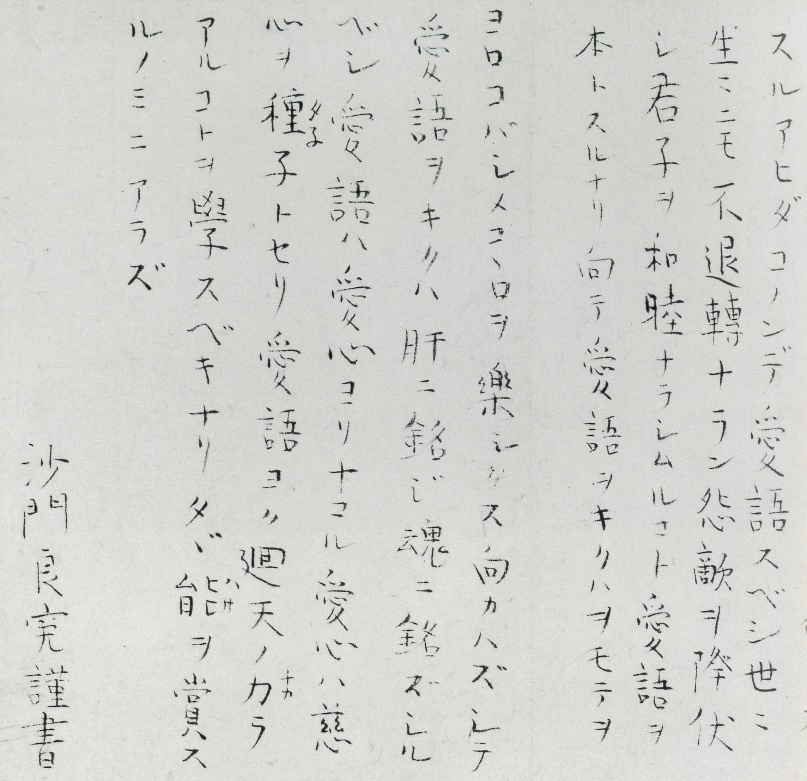 スルアヒダコノンデ愛語スベシ世ミ
生ミニモ不退轉ナラン怨敵ヲ降伏
シ君子ヲ和睦ナラシムルコト愛語ヲ
本トスルナリ向テ愛語ヲキクハヲモテヲ
ヨロコバシメコヽロヲ樂シクス向カハズシテ
愛語ヲキクハ肝ニ銘ジ魂ニ銘ズシル
ベシ愛語ハ愛心ヨリヲコル愛心ハ慈
心ヲ種子トセリ愛語ヨク廻天ノカラ
アルコトヲ學スベキナリタヾ能ヲ賞ス
ルノミニアラズ
沙門良寛謹書